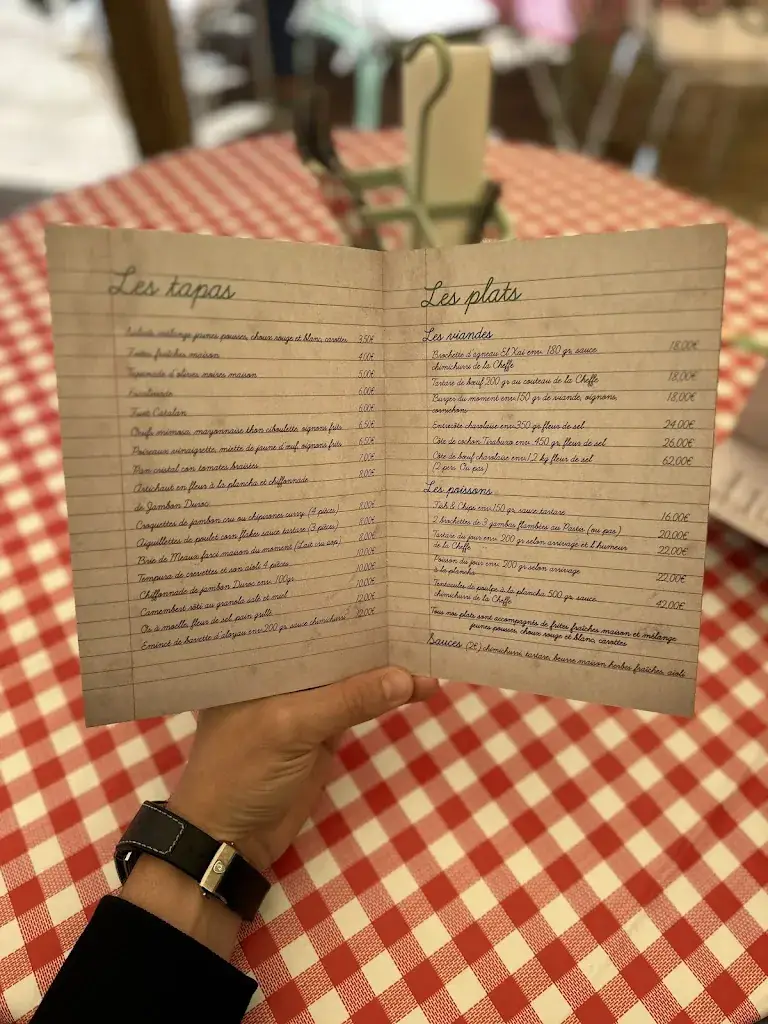 Les tapas
Salade mélange jeunes pousses, choux rouge et blanc, carottes 3.50€
Frites fraîches maison 4.00€
Tapenade d'olives noires maison 5.00€
6.00€
Fuet Catalan 6.00€
Oeufs mimosa, mayonnaise thon ciboulette, oignons frits 6.50€
Poireaux vinaigrette, miette de jaune d'œuf, oignons frits 6.50€
Pan cristal con tomates braisées 7.00€
Artichaut en fleur à la plancha et chiffonnade 8.00€
de Jambon Duroc
Croquettes de jambon cru ou chipirones curry (4 pièces) 8.00€
Aiguillettes de poulet corn flakes sauce tartare (3 pièces) 8.00€
Brie de Meaux farci maison du moment (Lait cru aop) 8.00€
Tempura de crevettes et son aïoli 4 pièces 10.00€
Chiffonnade de jambon Duroc env 100gr 10.00€
Camembert rôti au granola salé et miel 10.00€
Os à moelle, fleur de sel, pain grillé 12.00€
Emincé de bavette d'aloyau env 200 gr sauce chimichurri 12.00€
Les plats
Les viandes
Brochette d'agneau El Xai env 180 gr, sauce 18.00€
chimichurri de la Cheffe
Tartare de bœuf 200 gr au couteau de la Cheffe 18.00€
Burger du moment env 150 gr de viande, oignons, 18.00€
cornichons
Entrecôte charolaise env 350 gr fleur de sel 24.00€
Côte de cochon Tirabuixo env 450 gr fleur de sel 26.00€
Côte de bœuf charolaise env 1.2 kg fleur de sel 62.00€
(2 pers Ou pas)
Les poissons
Fish & Chips env 150 gr, sauce tartare 16.00€
2 brochettes de 3 gambas flambées au Pastis (ou pas) 20.00€
Tartare du jour env 200 gr selon arrivage et l'humeur 22.00€
de la Cheffe
Poisson du jour env 200 gr selon arrivage 22.00€
à la plancha
Tentacules de poulpe à la plancha 500 gr, sauce 42.00€
chimichurri de la Cheffe
Tous nos plats sont accompagnés de frites fraîches maison et mélange
jeunes pousses, choux rouge et blanc, carottes
Sauces (2€) chimichurri, tartare, beurre maison herbes fraîches, aïoli